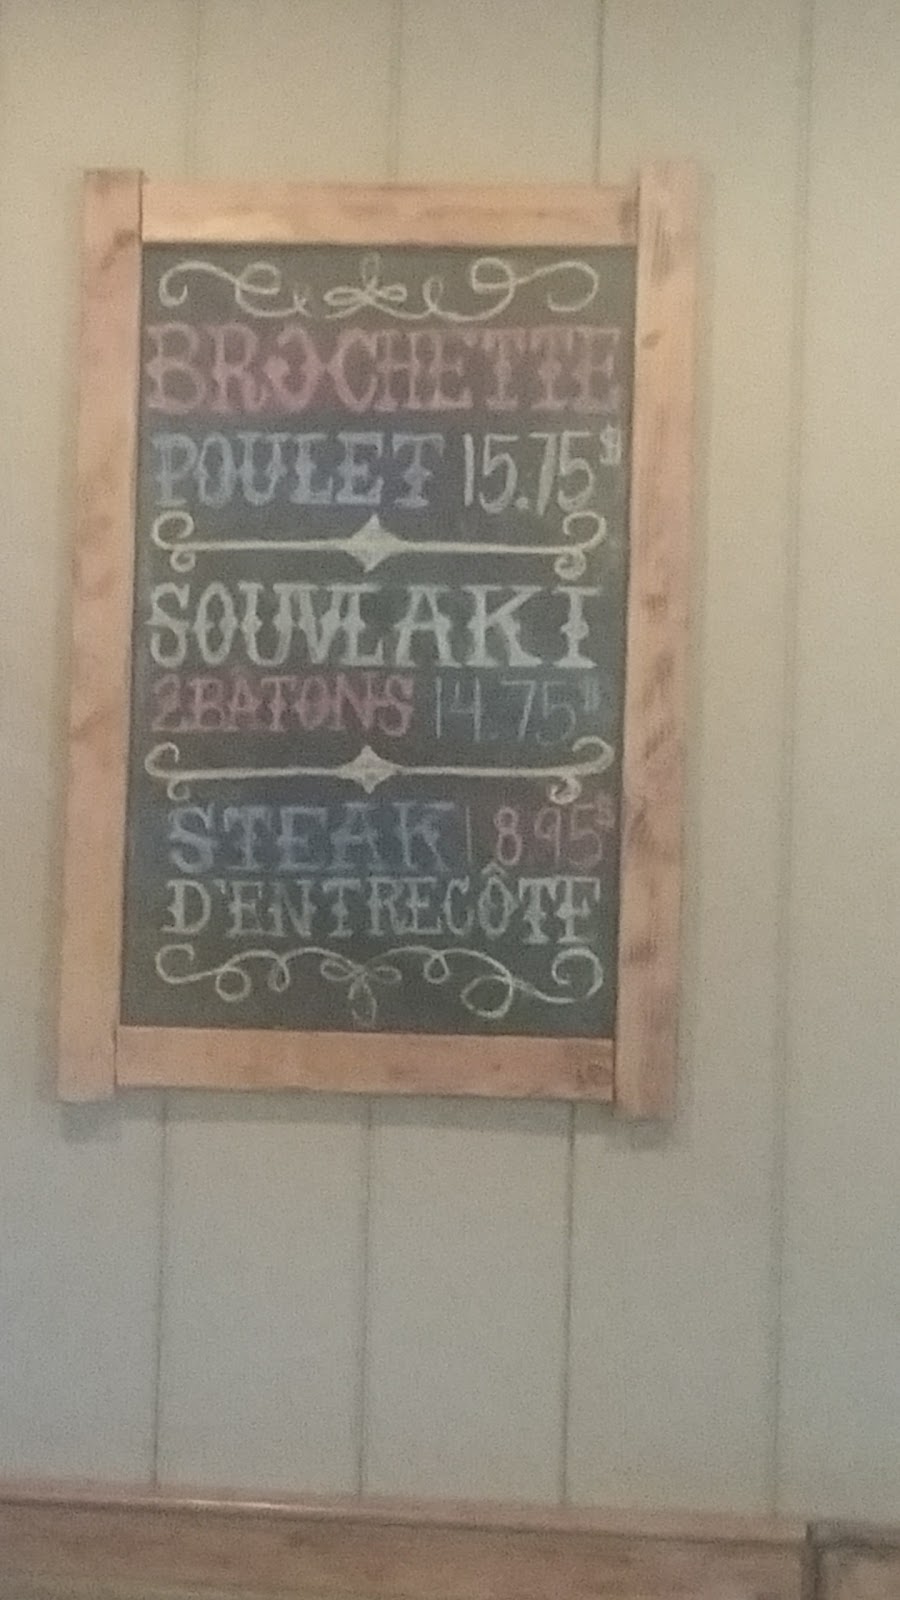 BROCHETTE
POULET 15.75$
SOUVLAKI
2 BATONS 14.75$
STEAK 18.95$
D'ENTRECÔTE